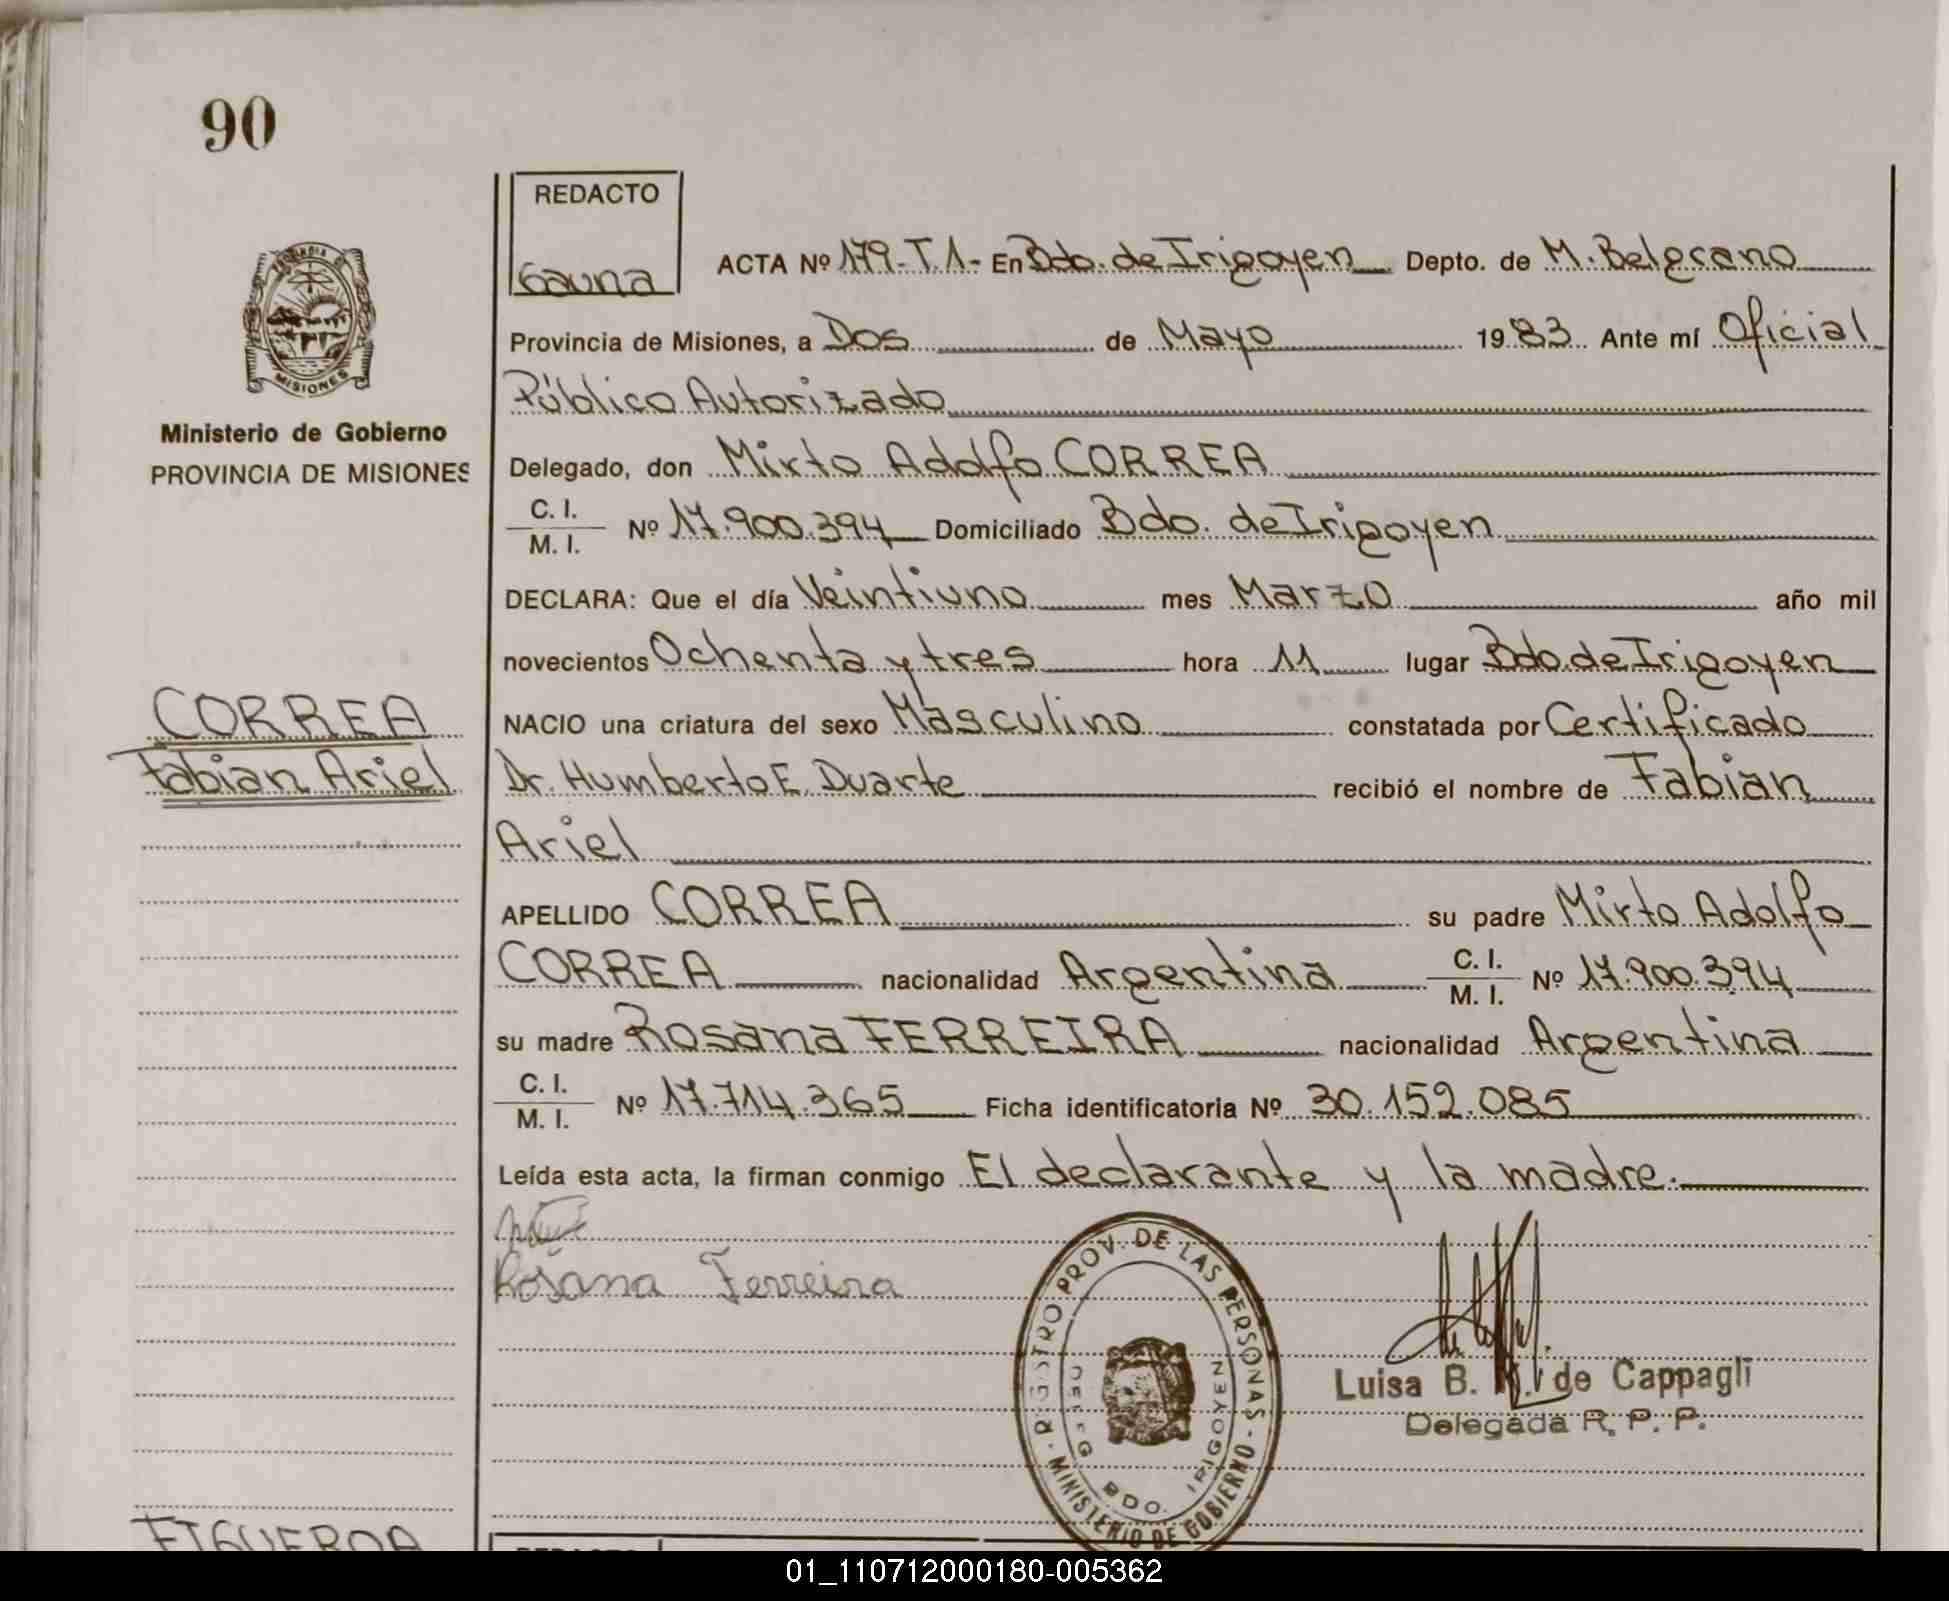 90
REDACTO
Gauna
ACTA Nº 179-T.1- En Bdo. de Irigoyen Depto. de M. Belgrano
Provincia de Misiones, a Dos de Mayo 1983 Ante mí Oficial
Público Autorizado
Delegado, don Mirto Adolfo CORREA
C. I.
M. I. Nº 17.900.394 Domiciliado Bdo. de Irigoyen
DECLARA: Que el día Veintiuno mes Marzo año mil
novecientos Ochenta y tres hora 11 lugar Bdo. de Irigoyen
NACIO una criatura del sexo Masculino constatada por Certificado
Dr. Humberto E. Duarte recibió el nombre de Fabian
Ariel
APELLIDO CORREA su padre Mirto Adolfo
CORREA nacionalidad Argentina C. I.
M. I. Nº 17.900.394
su madre Rosana FERREIRA nacionalidad Argentina
C. I.
M. I. Nº 17.714.365 Ficha identificatoria Nº 30.152.085
Leída esta acta, la firman conmigo El declarante y la madre.
Rosana Ferreira
PROVINCIA DE
MISIONES
Ministerio de Gobierno
PROVINCIA DE MISIONES
CORREA
Fabian Ariel
REGISTRO PROV. DE LAS PERSONAS - MINISTERIO DE GOBIERNO
BDO. IRIGOYEN
Luisa B. de Cappagli
Delegada R. P. P.
FIGUEROA
REDACTO
01_110712000180-005362